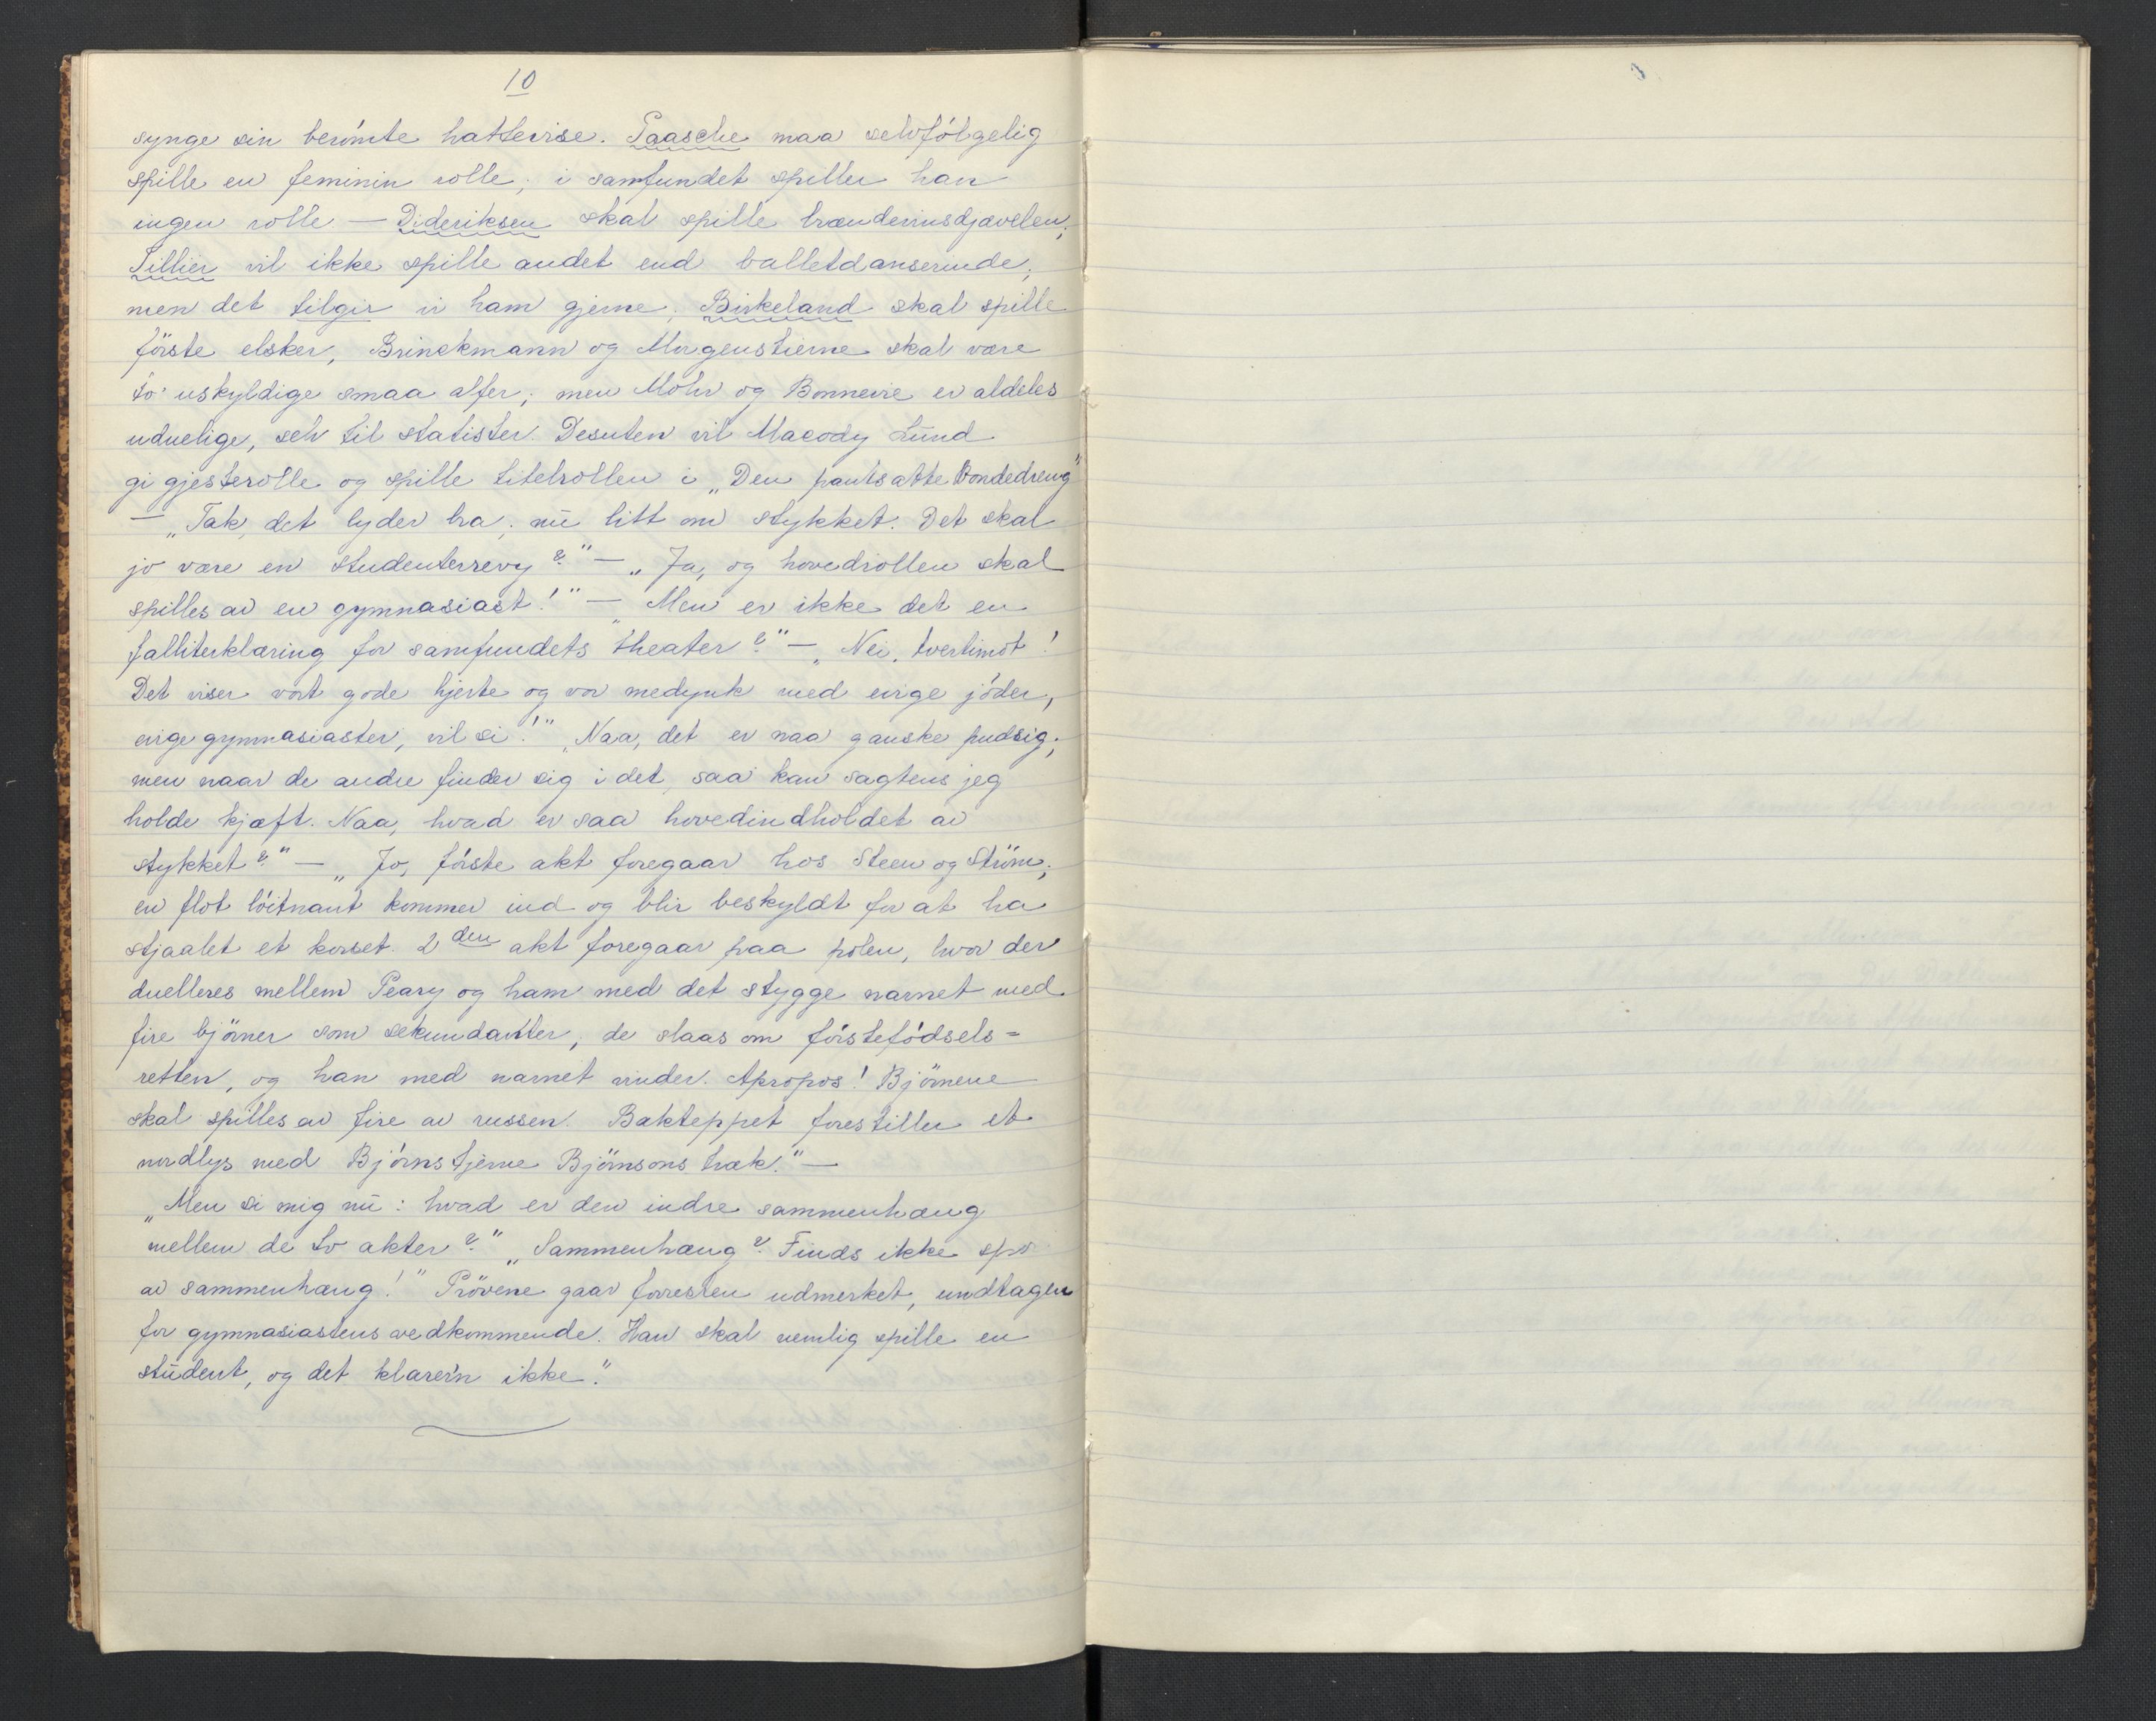 10
synge sin berömte hattevise. Paasche maa selvfölgelig
spille en feminin rolle; i samfundet spiller han
ingen rolle — Dideriksen skal spille brændevinsdjævelen;
Tillier vil ikke spille andet end balletdanserinde;
men det tilgir vi ham gjerne; Birkeland skal spille
förste elsker, Brinckmann og Morgenstierne skal være
to uskyldige smaa alfer; men Mohr og Bonnevie er aldeles
uduelige, selv til statister. Desuten vil Macody Lund
gi gjesterolle og spille titelrollen i „Den pantsatte Bondedreng"
— „Tak, det lyder bra; nu litt om stykket. Det skal
jo være en studenterrevy?" — „Ja, og hovedrollen skal
spilles av en gymnasiast!" — „Men er ikke det en
falliterklæring for samfundets theater?" — „Nei, tvertimot!
Det viser vort gode hjerte og vor medynk med evige jöder,
evige gymnasiaster, vil si!" „Naa, det er naa ganske pudsig;
men naar de andre finder sig i det, saa kan sagtens jeg
holde kjæft. Naa, hvad er saa hovedindholdet av
stykket?" — „Jo, förste akt foregaar hos Steen og Ström;
en flot löitnant kommer ind og blir beskyldt for at ha
stjaalet et korset. 2den akt foregaar paa polen, hvor der
duelleres mellem Peary og ham med det stygge navnet med
fire björner som sekundanter; de slaas om förstefödsels=
retten, og han med navnet vinder. Apropos! Björnene
skal spilles av fire av russen. Bakteppet forestiller et
nordlys med Björnstjerne Björnsons træk." —
„Men si mig nu: hvad er den indre sammenhæng
mellem de to akter?" „Sammenhæng? Finds ikke spor
av sammenhæng!" Prövene gaar forresten udmerket, undtagen
for gymnasiastens vedkommende. Han skal nemlig spille en
student, og det klarer'n ikke."